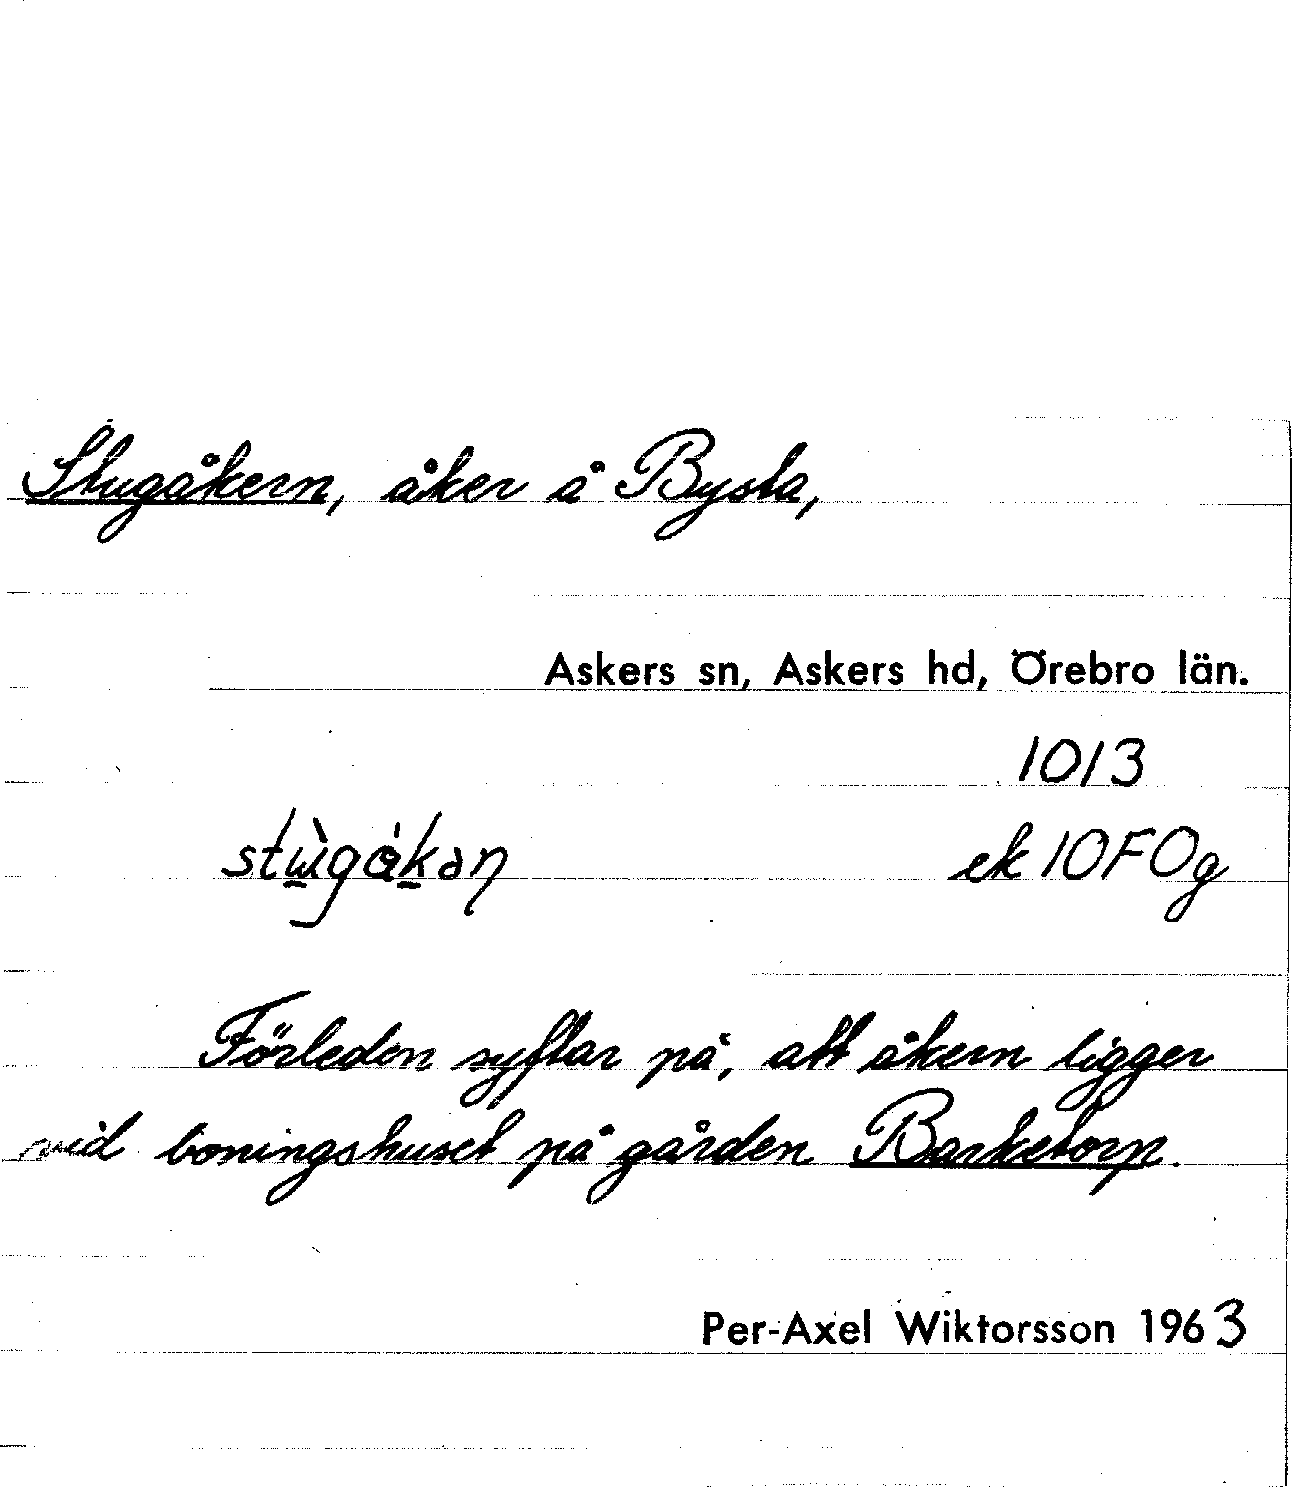 Stugåkern, åker å Bysta,
Askers sn, Askers hd, Örebro län.
1013
ek 10FOg
Förleden syftar på, att åkern ligger
vid boningshuset på gården Barketorp.
Per-Axel Wiktorsson 1963